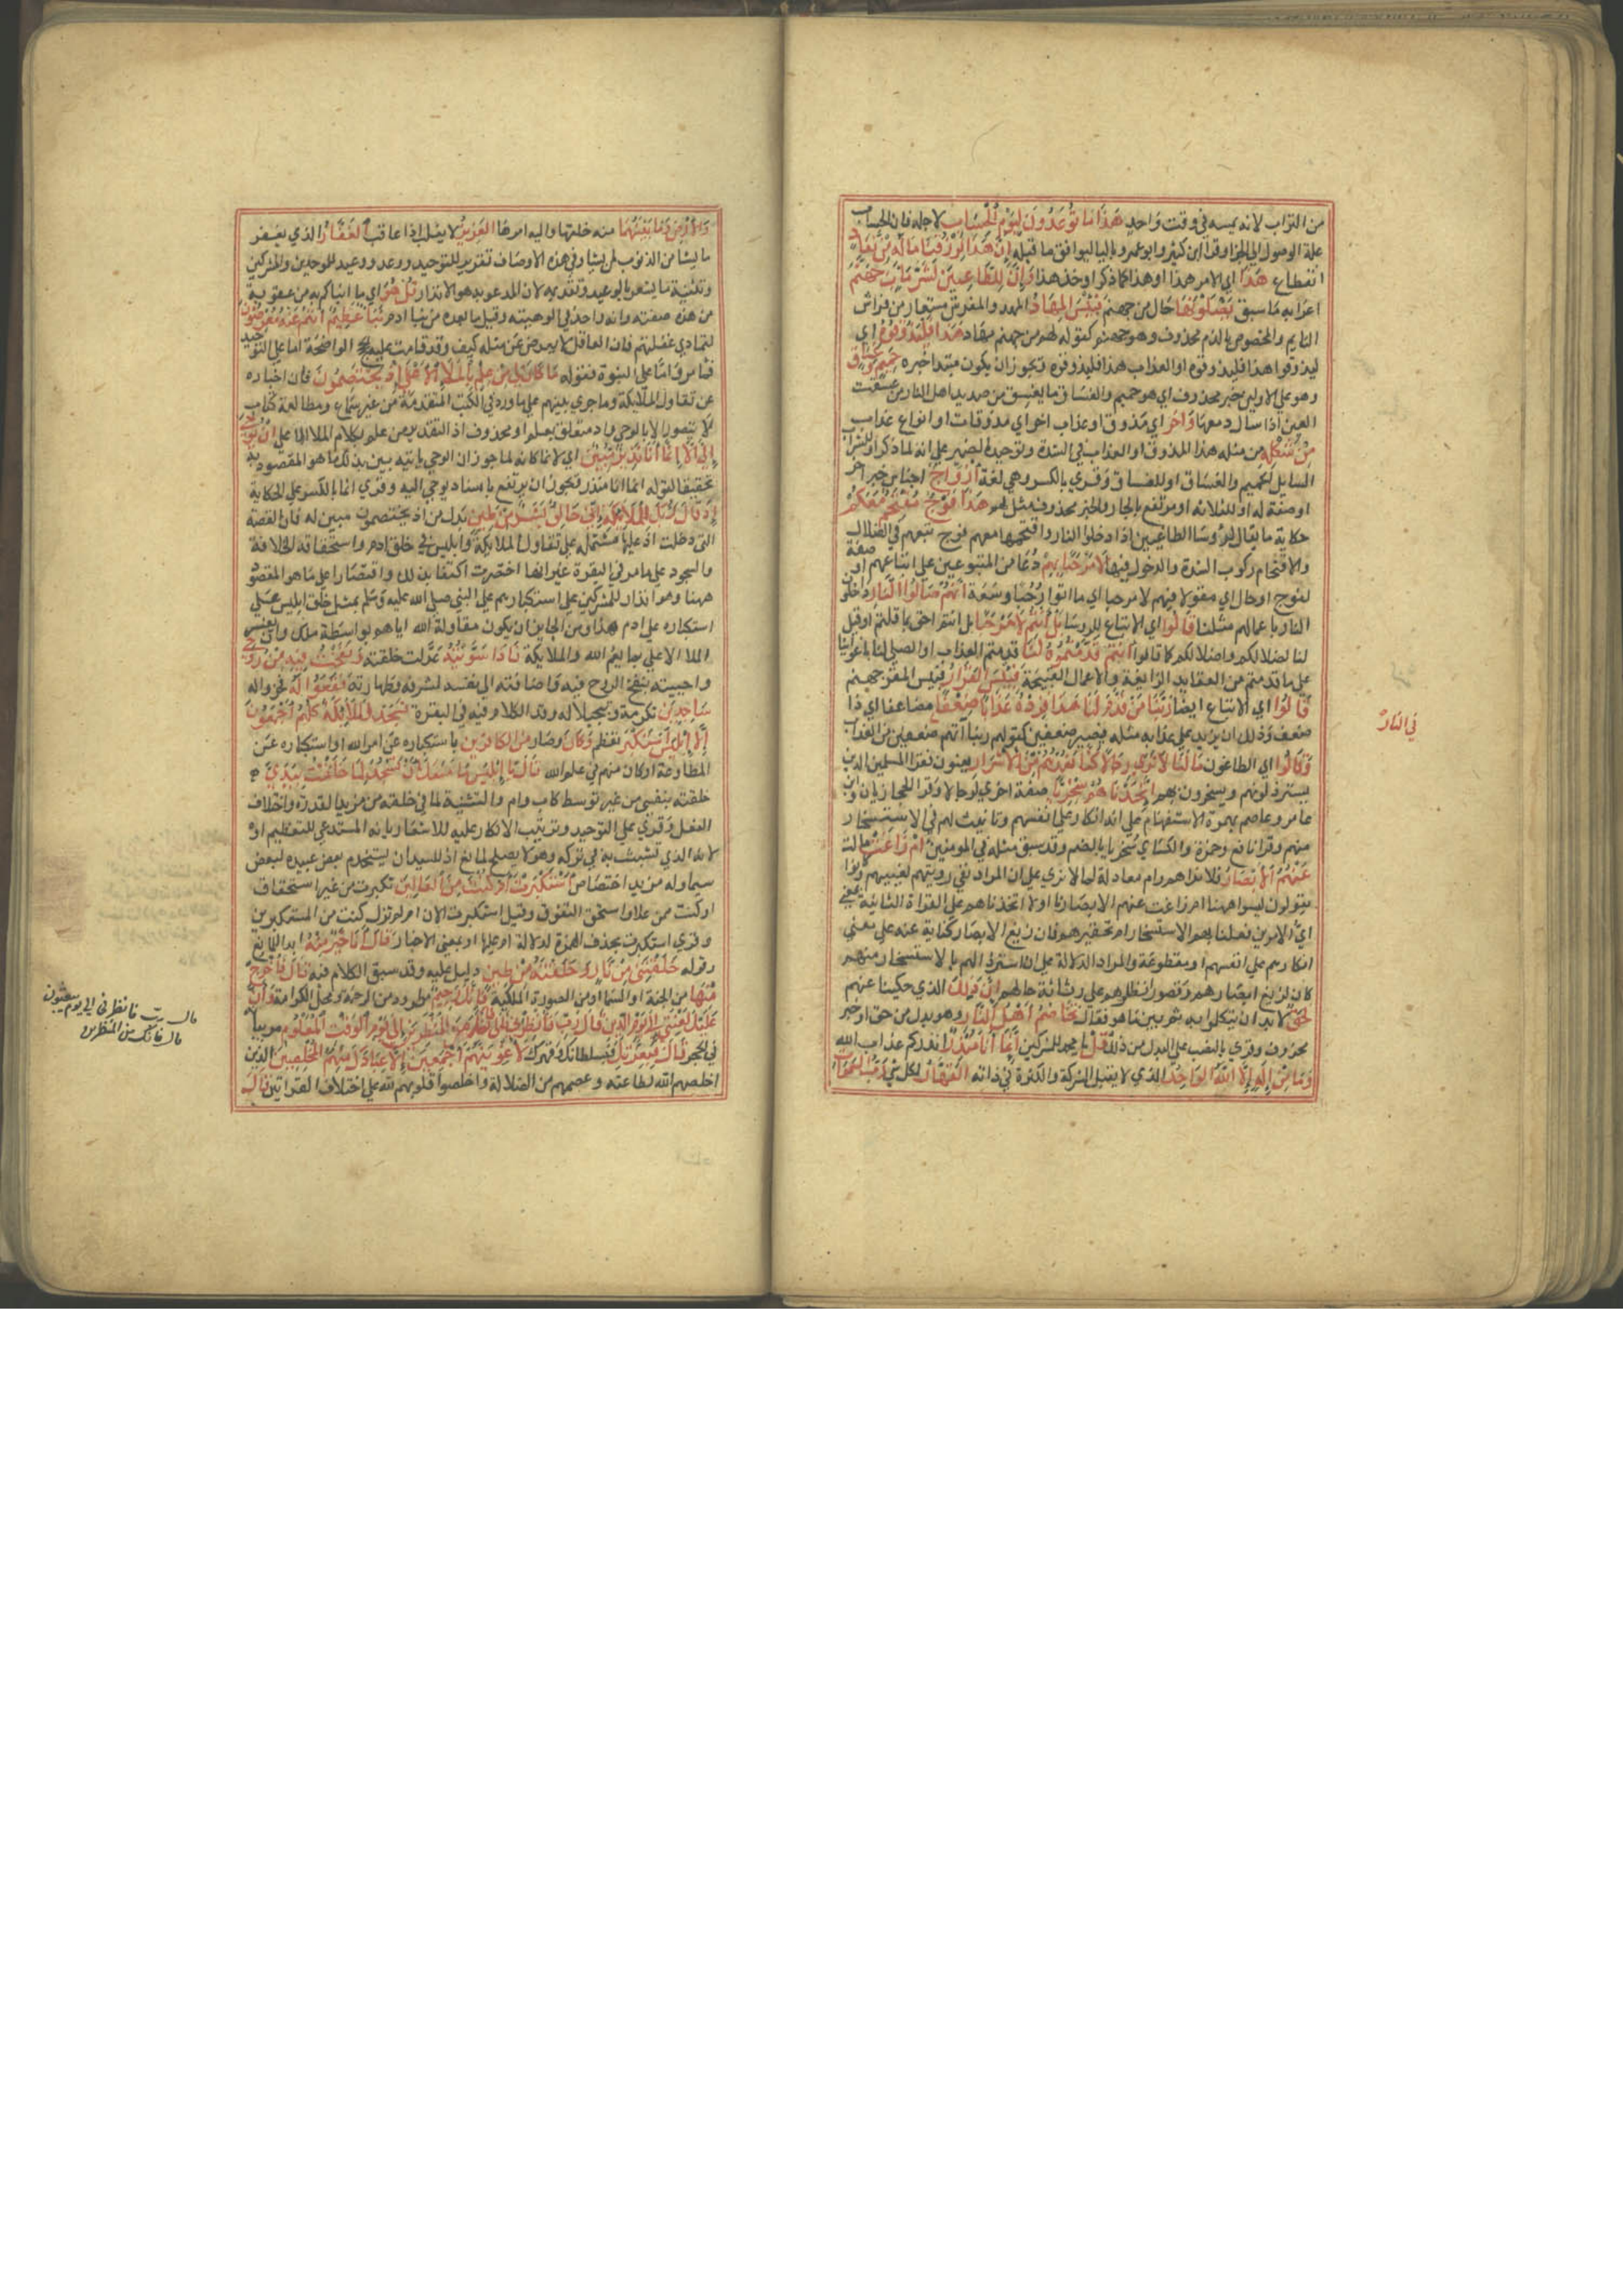 من التراب لانه يمسه في وقت واحد هَذَا مَا تُوعَدُونَ لِيَوْمِ الْحِسَابِ لاجله فان الحساب
علة الوصول الي الجزا وقرا ابن كثير وابو عمرو باليا ليوافق ما قبله إِنَّ هَذَا لَرِزْقُنَا مَا لَهُ مِنْ نَفَادٍ
انقطاع هَذَا اي الامر هذا او هذا كما ذكر او خذ هذا وَإِنَّ لِلطَّاغِينَ لَشَرَّ مَآبٍ جَهَنَّمَ
اعرابه ما سبق يَصْلَوْنَهَا حال من جهنم فَبِئْسَ الْمِهَادُ المهد والمفترش مستعار من فراش
النايم والمخصوص بالذم محذوف وهو جهنم كقوله لهم من جهنم مهاد هَذَا فَلْيَذُوقُوهُ اي
ليذوقوا هذا فليذوقوه او العذاب هذا فليذوقوه ويجوز ان يكون مبتدا خبره حَمِيمٌ وَغَسَّاقٌ
وهو علي الاولين خبر محذوف اي هو حميم والغساق ما يغسق من صديد اهل النار من غسقت
العين اذا سال دمعها وَآخَرُ اي مذوق او عذاب اخر اي مذوقات او انواع عذاب
مِنْ شَكْلِهِ من مثله هذا المذوق او العذاب في الشدة وتوحيد الضمير علي انه لما ذكر او للشراب
الشامل للحميم والغساق او للغساق وقري بالكسر وهي لغة أَزْوَاجٌ اجناس خبر اخر
او صفة له او للثلاثة او مرتفع بالجار والخبر محذوف مثل لهم هَذَا فَوْجٌ مُقْتَحِمٌ مَعَكُمْ
حكاية ما يقال لرؤسا الطاغيين اذا دخلوا النار واقتحمها معهم فوج تبعهم في الضلال
والاقتحام ركوب الشدة والدخول فيها لَا مَرْحَبًا بِهِمْ دعا من المتبوعين علي اتباعهم او صفة
لفوج او حال اي مقولا فيهم لا مرحبا اي ما اتوا رحبا وسعة إِنَّهُمْ صَالُوا النَّارِ داخلون
النار باعمالهم مثلنا قَالُوا اي الاتباع للروسا بَلْ أَنْتُمْ لَا مَرْحَبًا بل انتم احق بما قلتم او قيل
لنا لضلالكم واضلالكم كما قالوا أَنْتُمْ قَدَّمْتُمُوهُ لَنَا قدمتم العذاب او الصلي لنا باغوائنا
علي ما قدمتم من العقايد الزايغة والاعمال القبيحة فَبِئْسَ الْقَرَارُ فبئس المقر جهنم
قَالُوا اي الاتباع ايضا رَبَّنَا مَنْ قَدَّمَ لَنَا هَذَا فَزِدْهُ عَذَابًا ضِعْفًا مضاعفا اي ذا
ضعف وذلك ان يزيد علي عذابه مثله فيصير ضعفين كقولهم ربنا آتهم ضعفين من العذاب
وَقَالُوا اي الطاغون مَا لَنَا لَا نَرَى رِجَالًا كُنَّا نَعُدُّهُمْ مِنَ الْأَشْرَارِ يعنون فقرا المسلمين الذين
يسترذلونهم ويسخرون بهم أَتَّخَذْنَاهُمْ سِخْرِيًّا صفة اخري لرجالا وقرا الحجازيان وابن
عامر وعاصم بهمزة الاستفهام علي انه انكار علي انفسهم وتانيب لهم في الاستسخار
منهم وقرا نافع وحمزة والكسائي سخريا بالضم وقد سبق مثله في المومنين أَمْ زَاغَتْ مالت
عَنْهُمُ الْأَبْصَارُ فلا نراهم وام معادلة لما لا نري علي ان المراد نفي رويتهم لغيبتهم كانوا
يقولون ليسوا ههنا ام زاغت عنهم الابصارنا او لاتخذناهم علي القراة الثانية بمعني
اي الامرين فعلنا بهم الاستسخار ام تحقيرهم فان زيغ الابصار كناية عنه علي معني
انكارهم علي انفسهم او منقطعة والمراد الدلالة علي ان استرذالهم والاستسخار منهم
كان لزيغ ابصارهم وقصور انظارهم علي رثاثة حالهم إِنَّ ذَلِكَ الذي حكينا عنهم
لَحَقٌّ لا بد ان يتكلموا به ثم بين ما هو فقال تَخَاصُمُ أَهْلِ النَّارِ وهو بدل من حق او خبر
محذوف وقري بالنصب علي البدل من ذلك قُلْ يا محمد للمشركين إِنَّمَا أَنَا مُنْذِرٌ انذركم عذاب الله
وَمَا مِنْ إِلَهٍ إِلَّا اللَّهُ الْوَاحِدُ الذي لا يقبل الشركة والكثرة في ذاته الْقَهَّارُ لكل شي رَبُّ السَّمَوَاتِ
في النار
وَالْأَرْضِ وَمَا بَيْنَهُمَا منه خلقها واليه امرها الْعَزِيزُ لا يغلب اذا عاقب الْغَفَّارُ الذي يغفر
ما يشا من الذنوب لمن يشا وفي هذه الاوصاف تقرير للتوحيد ووعد ووعيد للموحدين والمشركين
وتثنية ما يشعر بالوعيد وتقديمه لان المدعو به هو الانذار قُلْ هُوَ اي ما انباكم به من عقوبة
من هذه صفته وانه واحد في الوهيته وقيل ما بعده من نبا ادم نَبَأٌ عَظِيمٌ أَنْتُمْ عَنْهُ مُعْرِضُونَ
لتمادي غفلتهم فان العاقل لا يعرض عن مثله كيف وقد قامت عليه الحجج الواضحة اما علي التوحيد
فما مر واما علي النبوة فقوله مَا كَانَ لِيَ مِنْ عِلْمٍ بِالْمَلَإِ الْأَعْلَى إِذْ يَخْتَصِمُونَ فان اخباره
عن تقاول الملايكة وما جري بينهم علي ما ورد في الكتب المتقدمة من غير سماع ومطالعة كتاب
لا يتصور الا بالوحي واذ متعلق بعلم او بمحذوف اذ التقدير من علم بكلام الملا الاعلي إِنْ يُوحَى
إِلَيَّ إِلَّا أَنَّمَا أَنَا نَذِيرٌ مُبِينٌ اي لانما كانه لما جوز ان الوحي ياتيه بين بذلك ما هو المقصود به
تحقيقا لقوله انما انا منذر ويجوز ان يرتفع باسناد يوحي اليه وقري انما بالكسر علي الحكاية
إِذْ قَالَ رَبُّكَ لِلْمَلَائِكَةِ إِنِّي خَالِقٌ بَشَرًا مِنْ طِينٍ بدل من اذ يختصمون مبين له فان القصة
التي دخلت اذ عليها مشتملة علي تقاول الملايكة وابليس في خلق ادم واستحقاقه للخلافة
والسجود علي ما مر في البقرة غير انها اختصرت اكتفا بذلك واقتصارا علي ما هو المقصود
ههنا وهو انذار للمشركين علي استكبارهم علي النبي صلي الله عليه وسلم بمثل ما خلق ابليس علي
استكباره علي ادم هذا ومن الجايز ان يكون مقاولة الله اياهم بواسطة ملك وان يفسر
الملا الاعلي بما يعم الله والملايكة فَإِذَا سَوَّيْتُهُ عدلت خلقته وَنَفَخْتُ فِيهِ مِنْ رُوحِي
واحييته بنفخ الروح فيه واضافته الي نفسه لشرفه وطهارته فَقَعُوا لَهُ فخروا له
سَاجِدِينَ تكرمة وتبجيلا له وقد الكلام فيه في البقرة فَسَجَدَ الْمَلَائِكَةُ كُلُّهُمْ أَجْمَعُونَ
إِلَّا إِبْلِيسَ اسْتَكْبَرَ تعظم وَكَانَ وصار مِنَ الْكَافِرِينَ باستكباره عن امر الله او استكباره عن
المطاوعة او كان منهم في علم الله قَالَ يَا إِبْلِيسُ مَا مَنَعَكَ أَنْ تَسْجُدَ لِمَا خَلَقْتُ بِيَدَيَّ
خلقته بنفسي من غير توسط كاب وام والتثنية لما في خلقته من مزيد القدرة واختلاف
الفعل وقري علي التوحيد وترتيب الانكار عليه للاشعار بانه المستدعي للتعظيم او
لانه الذي تشبث به في تركه وهو لا يصلح لمانع اذ للسيد ان يستخدم بعض عبيده لبعض
سيما وله مزيد اختصاص أَسْتَكْبَرْتَ أَمْ كُنْتَ مِنَ الْعَالِينَ تكبرت من غير استحقاق
او كنت ممن علا واستحق التفوق وقيل استكبرت الان ام لم تزل كنت من المستكبرين
وقري استكبرت بحذف الهمزة لدلالة ام عليها او بمعني الاخبار قَالَ أَنَا خَيْرٌ مِنْهُ ابدا للمانع
وقوله خَلَقْتَنِي مِنْ نَارٍ وَخَلَقْتَهُ مِنْ طِينٍ دليل عليه وقد سبق الكلام فيه قَالَ فَاخْرُجْ
مِنْهَا من الجنة او السما او من الصورة الملكية فَإِنَّكَ رَجِيمٌ مطرود من الرحمة ومحل الكرامة وَإِنَّ
عَلَيْكَ لَعْنَتِي إِلَى يَوْمِ الدِّينِ قَالَ رَبِّ فَأَنْظِرْنِي إِلَى يَوْمِ الْوَقْتِ الْمَعْلُومِ مر بيانه
في الحجر قَالَ فَبِعِزَّتِكَ فبسلطانك وقهرك لَأُغْوِيَنَّهُمْ أَجْمَعِينَ إِلَّا عِبَادَكَ مِنْهُمُ الْمُخْلَصِينَ الذين
اخلصهم الله لطاعته وعصمهم من الضلالة واخلصوا قلوبهم لله علي اختلاف القراتين قَالَ
قال رب فانظرني الي يوم يبعثون
قال فانك من المنظرين